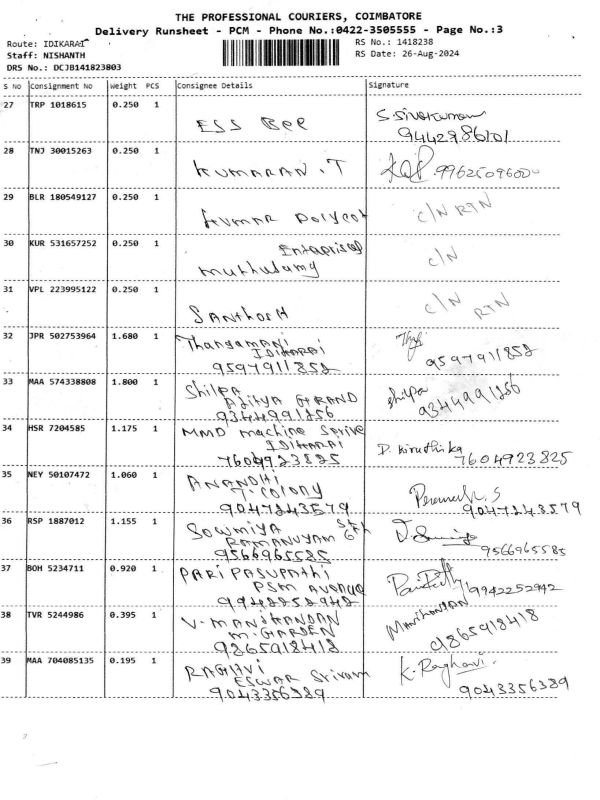 THE PROFESSIONAL COURIERS, COIMBATORE
Delivery Runsheet - PCM - Phone No.:0422-3505555 - Page No.:3
Route: IDIKARAI
RS No.: 1418238
Staff: NISHANTH
RS Date: 26-Aug-2024
DRS No.: DCJB141823803
S No Consignment No Weight PCS Consignee Details Signature
27 TRP 1018615 0.250 1 ESS Bee S. Sivakumar
9442986101
28 TNJ 30015263 0.250 1 KUMARAN.T 9962509600
29 BLR 180549127 0.250 1 Kumar Polycot C/N RTN
30 KUR 531657252 0.250 1 Enterprises C/N
Muthusamy
31 VPL 223995122 0.250 1 Santhosh C/N RTN
32 JPR 502753964 1.680 1 Thangamani
IDIKARAI
9597911852 9597911852
33 MAA 574338808 1.800 1 Shilpa Shilpa
Aditya GRAND
9344991256 9344991256
34 HSR 7204585 1.175 1 MMD machine Serive D. Kiruthika
IDIKARAI
7604923825 7604923825
35 NEY 50107472 1.060 1 ANANDHI
T. Colony
9047243579 9047243579
36 RSP 1887012 1.155 1 Sowmiya
RAMANUYAM
9566965585 9566965585
37 BOH 5234711 0.920 1 PARI PASUPATHI
PSM Avenue
9942252942 9942252942
38 TVR 5244986 0.395 1 V. MANIKANDAN Manikandan
M. GARDEN
9865918418 9865918418
39 MAA 704085135 0.195 1 RAGHVI K. Raghavi
ESWAR Srivari
9043356389 9043356389